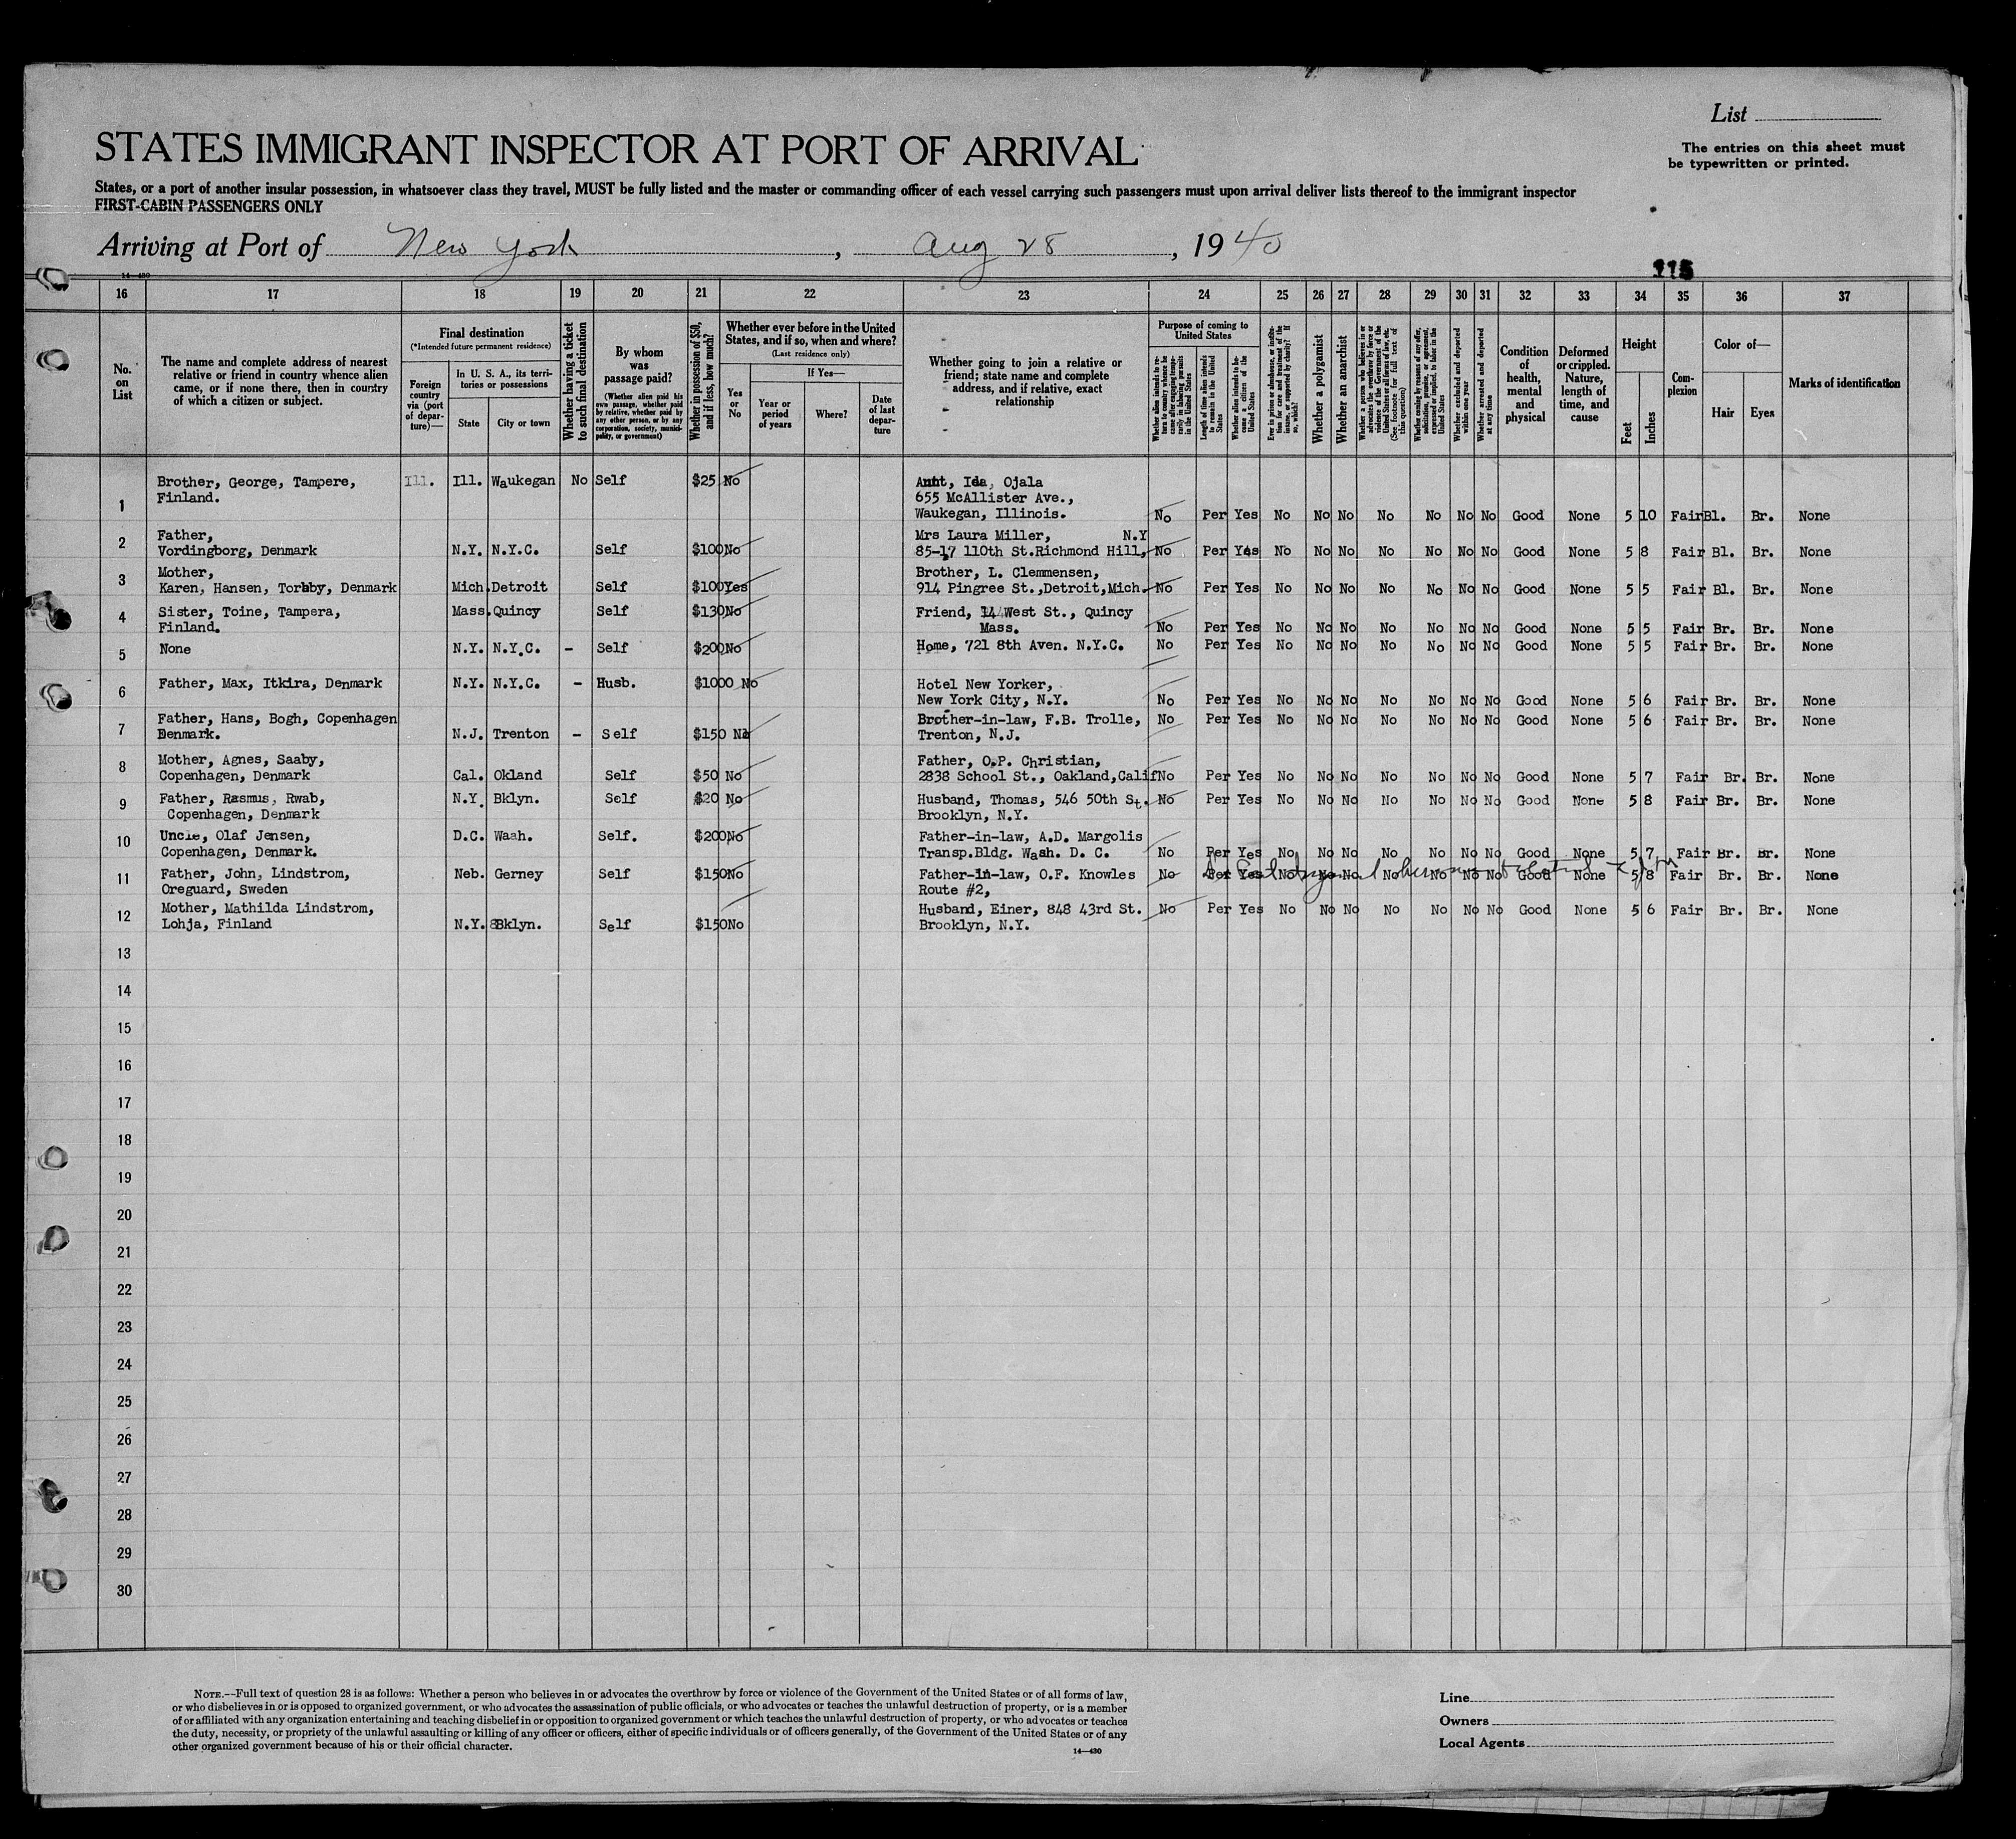 List
STATES IMMIGRANT INSPECTOR AT PORT OF ARRIVAL
The entries on this sheet must
be typewritten or printed.
States, or a port of another insular possession, in whatsoever class they travel, MUST be fully listed and the master or commanding officer of each vessel carrying such passengers must upon arrival deliver lists thereof to the immigrant inspector
FIRST-CABIN PASSENGERS ONLY
Arriving at Port of New York, Aug 28, 1940
14—430
115
16 17 18 19 20 21 22 23 24 25 26 27 28 29 30 31 32 33 34 35 36 37
No.
on
List
The name and complete address of nearest
relative or friend in country whence alien
came, or if none there, then in country
of which a citizen or subject.
Final destination
(*Intended future permanent residence)
Foreign
country
via (port
of depar-
ture)—
In U. S. A., its terri-
tories or possessions
State
City or town
Whether having a ticket
to such final destination
By whom
was
passage paid?
(Whether alien paid his
own passage, whether paid
by relative, whether paid by
any other person, or by any
corporation, society, munici-
pality, or government)
Whether in possession of $50,
and if less, how much?
Whether ever before in the United
States, and if so, when and where?
(Last residence only)
Yes
or
No
If Yes—
Year or
period
of years
Where?
Date
of last
depar-
ture
Whether going to join a relative or
friend; state name and complete
address, and if relative, exact
relationship
Purpose of coming to
United States
Whether alien intends to re-
turn to country whence he
came after engaging tempo-
rarily in laboring pursuits
in the United States
Length of time alien intends
to remain in the United
States
Whether alien intends to be-
come a citizen of the
United States
Ever in prison or almshouse, or institu-
tion for care and treatment of the
insane, or supported by charity? If
so, which?
Whether a polygamist
Whether an anarchist
Whether a person who believes in or
advocates the overthrow by force or
violence of the Government of the
United States or all forms of law, etc.
(See footnote for full text of
this question)
Whether coming by reason of any offer,
solicitation, promise, or agreement,
expressed or implied, to labor in the
United States
Whether excluded and deported
within one year
Whether arrested and deported
at any time
Condition
of
health,
mental
and
physical
Deformed
or crippled.
Nature,
length of
time, and
cause
Height
Feet
Inches
Com-
plexion
Color of—
Hair
Eyes
Marks of identification
1 Brother, George, Tampere, Ill. Ill. Waukegan No Self $25 No Aunt, Ida, Ojala
Finland. 655 McAllister Ave.,
Waukegan, Illinois. No Per Yes No No No No No No No Good None 5 10 Fair Bl. Br. None
2 Father, Mrs Laura Miller, N.Y
Vordingborg, Denmark N.Y. N.Y.C. Self $100 No 85-17 110th St.Richmond Hill, No Per Yes No No No No No No No Good None 5 8 Fair Bl. Br. None
3 Mother, Brother, L. Clemmensen,
Karen, Hansen, Torbby, Denmark Mich. Detroit Self $100 Yes 914 Pingree St.,Detroit,Mich. No Per Yes No No No No No No No Good None 5 5 Fair Bl. Br. None
4 Sister, Toine, Tampera, Mass. Quincy Self $130 No Friend, 14 West St., Quincy
Finland. Mass. No Per Yes No No No No No No No Good None 5 5 Fair Br. Br. None
5 None N.Y. N.Y.C. - Self $200 No Home, 721 8th Aven. N.Y.C. No Per Yes No No No No No No No Good None 5 5 Fair Br. Br. None
6 Father, Max, Itkira, Denmark N.Y. N.Y.C. - Husb. $1000 No Hotel New Yorker,
New York City, N.Y. No Per Yes No No No No No No No Good None 5 6 Fair Br. Br. None
7 Father, Hans, Bogh, Copenhagen Brother-in-law, F.B. Trolle, No Per Yes No No No No No No No Good None 5 6 Fair Br. Br. None
Denmark. N.J. Trenton - Self $150 No Trenton, N.J.
8 Mother, Agnes, Saaby, Father, O.P. Christian,
Copenhagen, Denmark Cal. Okland Self $50 No 2838 School St., Oakland,Calif No Per Yes No No No No No No No Good None 5 7 Fair Br. Br. None
9 Father, Rasmus, Rwab, N.Y. Bklyn. Self $20 No Husband, Thomas, 546 50th St. No Per Yes No No No No No No No Good None 5 8 Fair Br. Br. None
Copenhagen, Denmark Brooklyn, N.Y.
10 Uncle, Olaf Jensen, D.C. Wash. Self. $200 No Father-in-law, A.D. Margolis
Copenhagen, Denmark. Transp.Bldg. Wash. D. C. No Per Yes No No No No No No No Good None 5 7 Fair Br. Br. None
11 Father, John, Lindstrom, Neb. Gerney Self $150 No Father-in-law, O.F. Knowles No Per Yes No No No No No No No Good None 5 8 Fair Br. Br. None
Oreguard, Sweden Route #2,
12 Mother, Mathilda Lindstrom, Husband, Einer, 848 43rd St. No Per Yes No No No No No No No Good None 5 6 Fair Br. Br. None
Lohja, Finland N.Y. Bklyn. Self $150 No Brooklyn, N.Y.
13
14
15
16
17
18
19
20
21
22
23
24
25
26
27
28
29
30
NOTE.—Full text of question 28 is as follows: Whether a person who believes in or advocates the overthrow by force or violence of the Government of the United States or of all forms of law,
or who disbelieves in or is opposed to organized government, or who advocates the assassination of public officials, or who advocates or teaches the unlawful destruction of property, or is a member
of or affiliated with any organization entertaining and teaching disbelief in or opposition to organized government or which teaches the unlawful destruction of property, or who advocates or teaches
the duty, necessity, or propriety of the unlawful assaulting or killing of any officer or officers, either of specific individuals or of officers generally, of the Government of the United States or of any
other organized government because of his or their official character.
14—430
Line
Owners
Local Agents